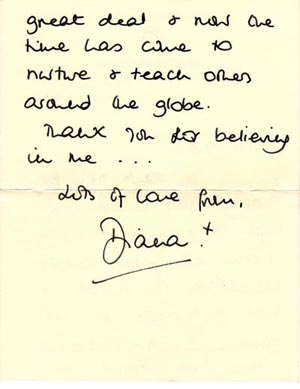 great deal & now the
time has come to
nurture & teach others
around the globe.
Thank you for believing
in me ...
Lots of love from,
Diana. x